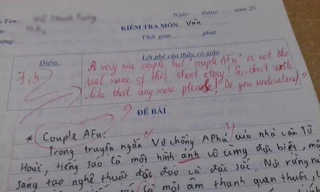 Ngày tháng năm 20
KIỂM TRA MÔN Văn
Thời gian phút
Điểm:
Lời phê của thầy, cô giáo
7,5
A very nice couple but "couple AFu" is not the
real name of this short story! So, don't write
like that any more please! Do you understand?
ĐỀ BÀI
* Couple AFu:
Trong truyện ngắn "Vợ chồng A Phủ" của nhà văn Tô
Hoài, tiếng sáo là một hình ảnh vô cùng đặc biệt, một
sáng tạo nghệ thuật độc đáo và đặc sắc. Nói
là một âm thanh quen thuộc,